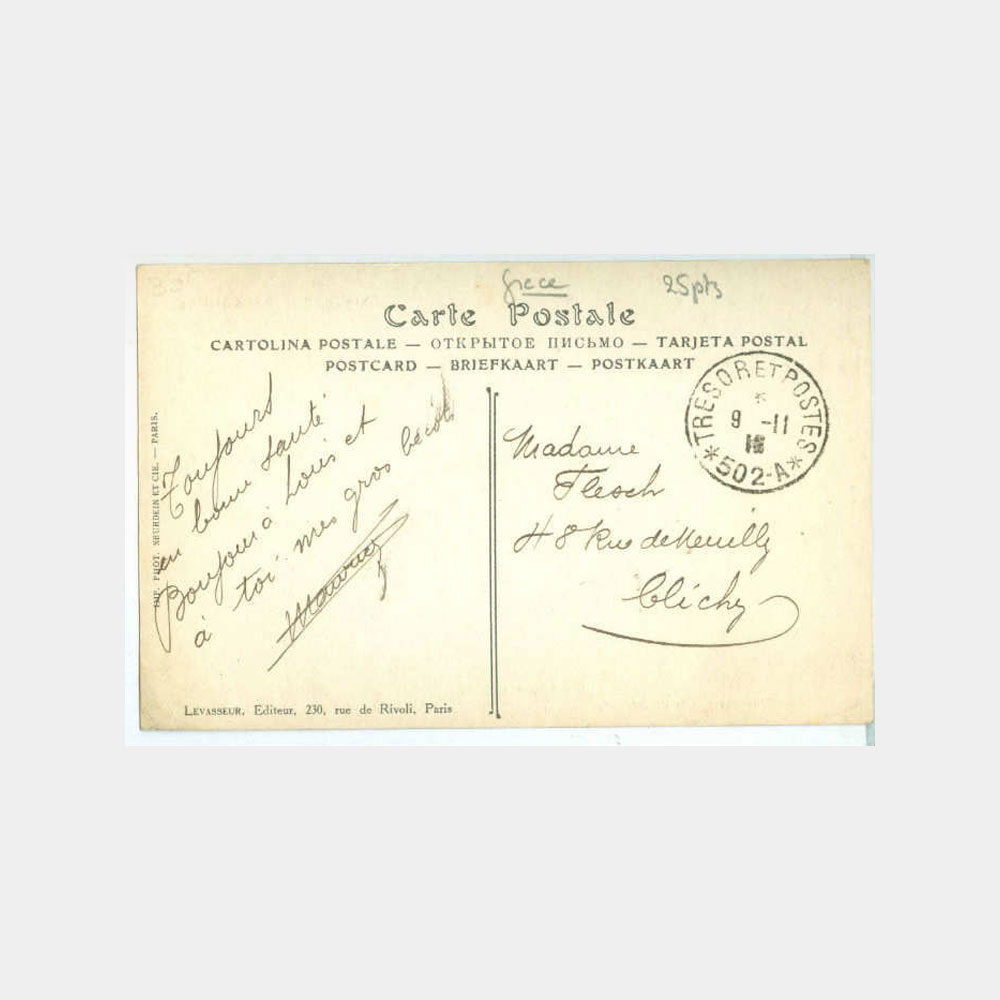 Grece
25pts
Carte Postale
CARTOLINA POSTALE — ОТКРЫТОЕ ПИСЬМО — TARJETA POSTAL
POSTCARD — BRIEFKAART — POSTKAART
TRESOR ET POSTES
9 -11
*502-A*
IMP. PHOT. NEURDEIN ET CIE. — PARIS.
Toujours
en bonne santé
Bonjour à Louis et
à toi mes gros bécots
Maurice
Madame
Flesch
48 Rue de Neuilly
Clichy
LEVASSEUR, Editeur, 230, rue de Rivoli, Paris